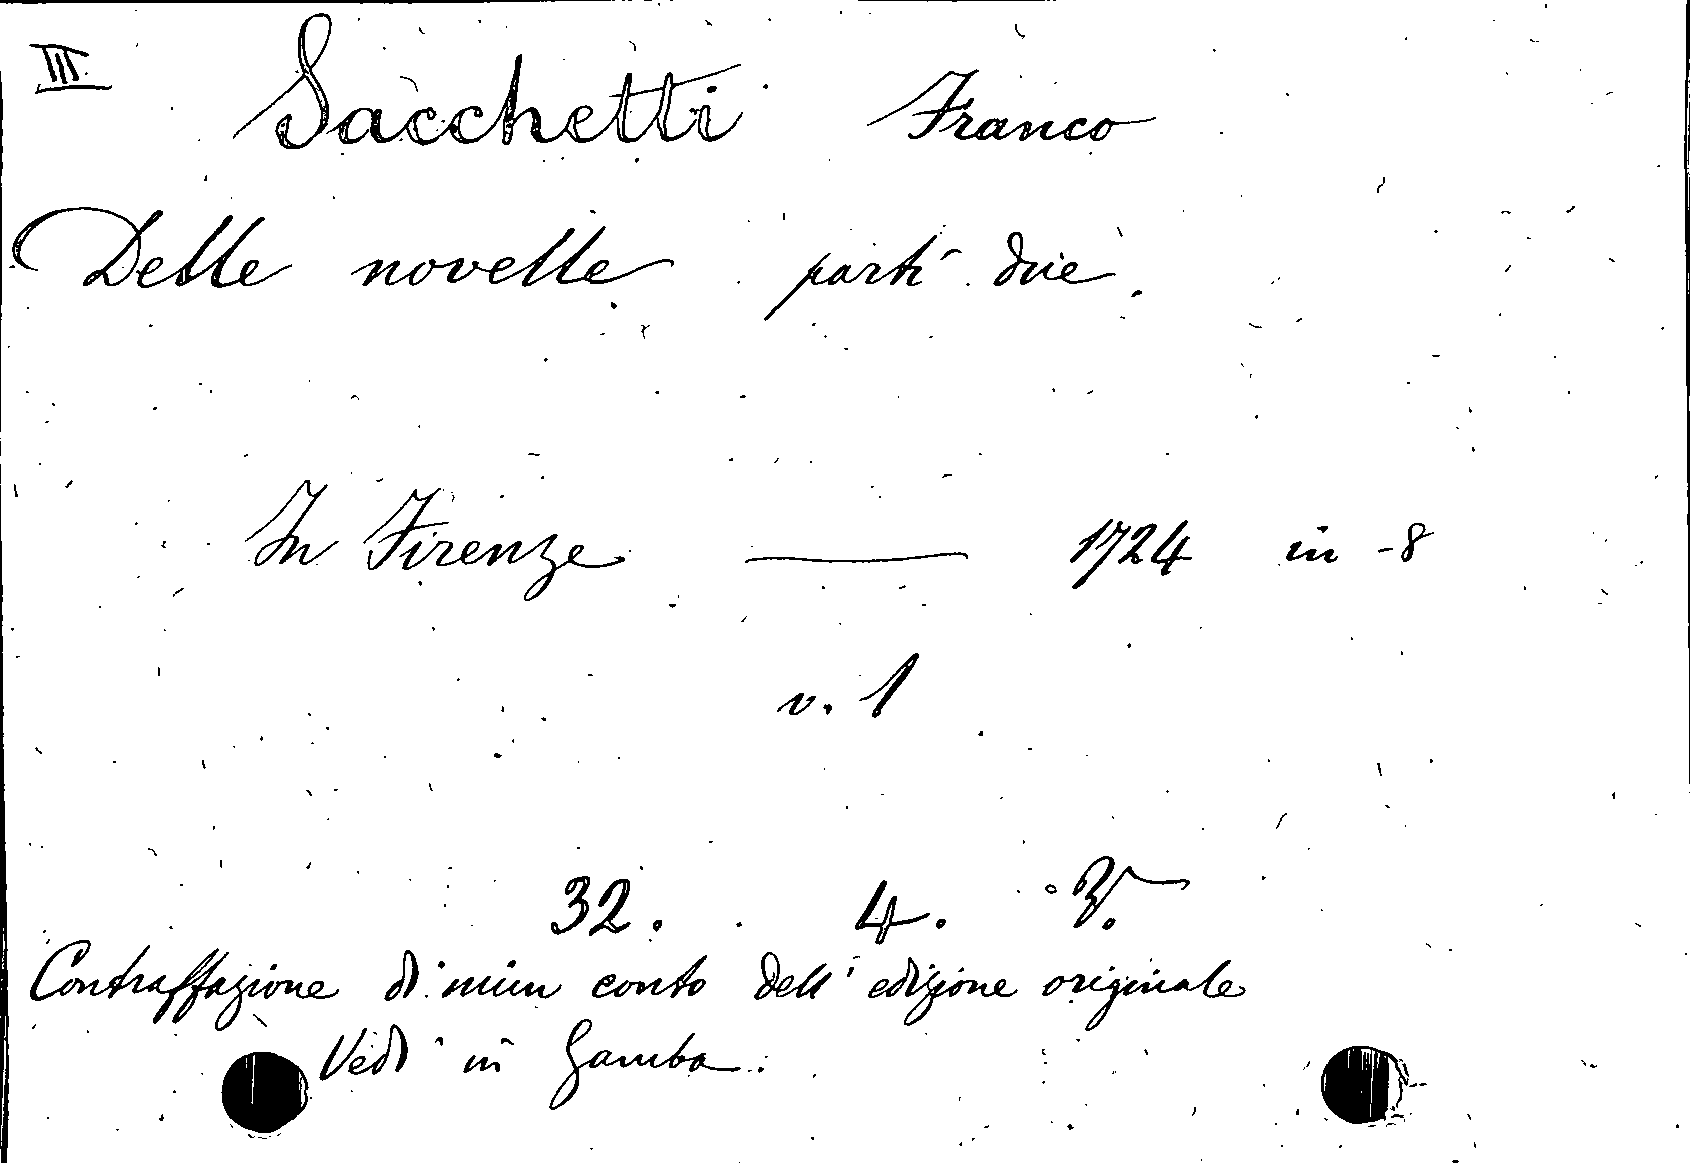 III
Sacchetti Franco
Delle novelle parti due.
In Firenze — 1724 in -8
v. 1
32. 4.
Contraffazione di niun conto dell'edizione originale
Vedi in Gamba.